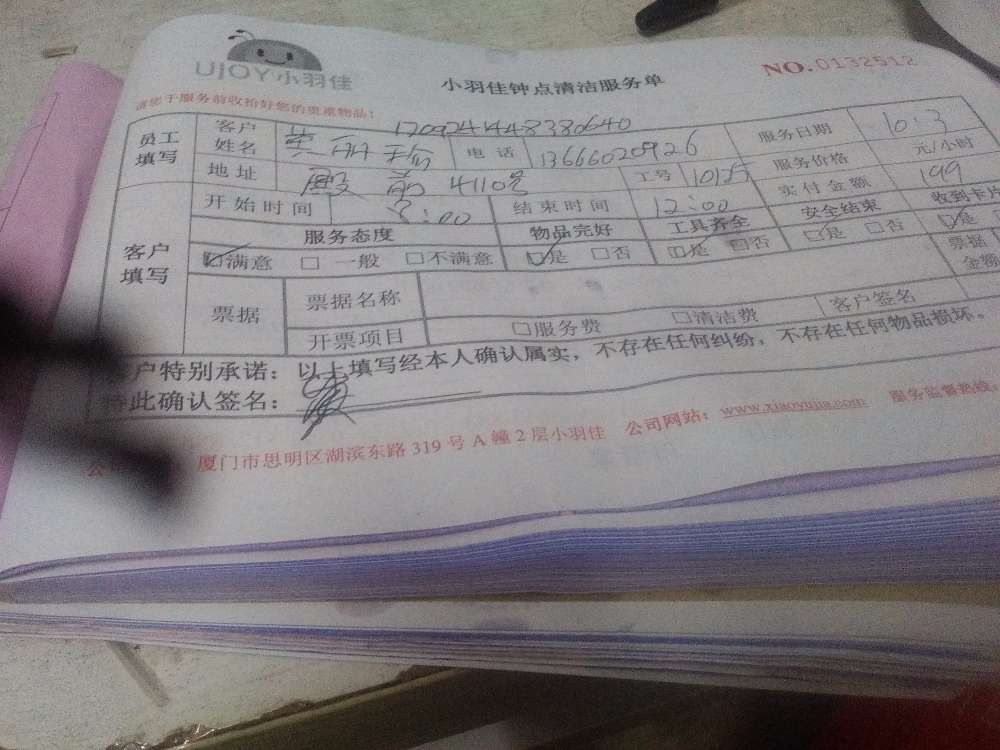 UJOY小羽佳
小羽佳钟点清洁服务单
NO.0132512
请您于服务前收拾好您的贵重物品！
1709241448380640
员工填写
客户姓名
电话 13666020926
服务日期 10.3
地址 殿前 4110号
工号
服务价格 元/小时
客户填写
开始时间 8:00
结束时间 12:00
实付金额 199
服务态度
物品完好
工具齐全
安全结束
收到卡片
☑满意 □一般 □不满意
☑是 □否
☑是 □否
☑是 □否
☑是
票据
票据名称
票据金额
开票项目
□服务费 □清洁费
客户签名
户特别承诺：以上填写经本人确认属实，不存在任何纠纷，不存在任何物品损坏。
特此确认签名：
厦门市思明区湖滨东路 319 号 A 幢 2 层小羽佳 公司网站：www.xiaoyujia.com 服务监督热线